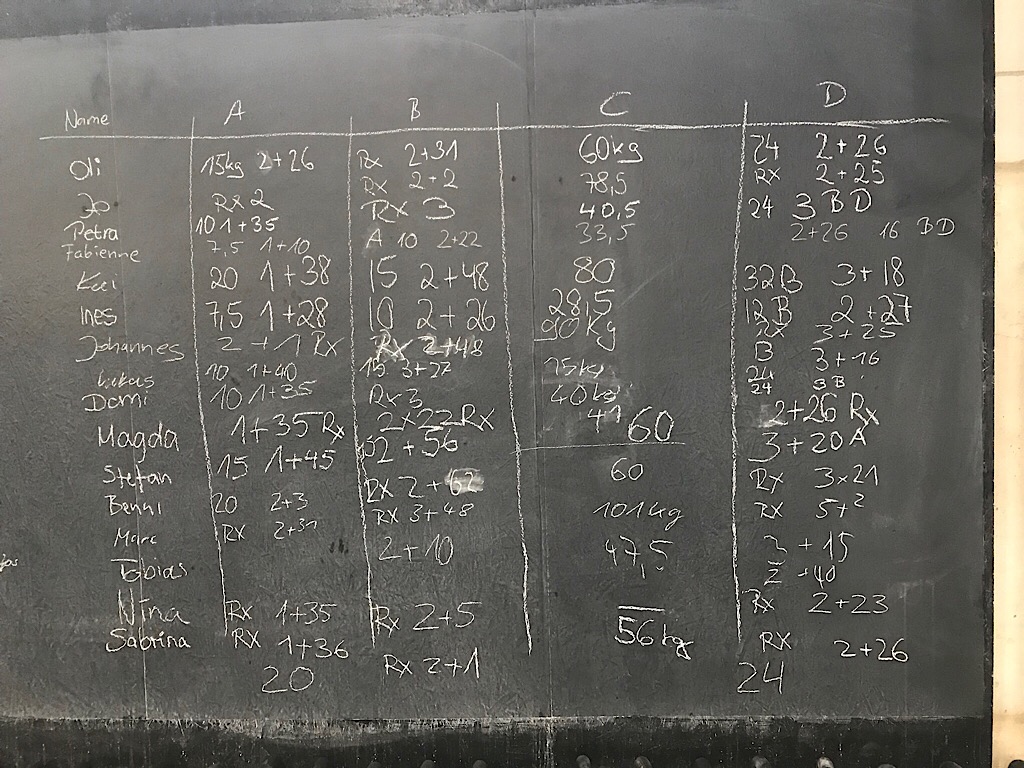 Name A B C D
Oli 15kg 2+26 Rx 2+31 60kg 24 2+26
Jo Rx 2 Rx 2+2 78,5 RX 2+25
Petra 10 1+35 Rx 3 40,5 24 3 BD
Fabienne 7,5 1+10 A 10 2+22 33,5 2+26 16 BD
Kai 20 1+38 15 2+48 80 32B 3+18
Ines 7,5 1+28 10 2+26 28,5 12B 2+27
Johannes 2+1 Rx Rx 2+48 90kg RX 3+25
Lukas 10 1+40 15 3+27 75kg B 24 3+16
Domi 10 1+35 Rx 3 40kg 24 3B
Magda 1+35 Rx 2x22Rx 41 2+26 Rx
Stefan 15 1+45 2+56 60 3+20A
Benni 20 2+3 RX 2+ 60 Rx 3x21
Marc RX 2+31 RX 3+48 101kg RX 5+2
Tobias 2+10 47,5 3+15
2+40
Nina Rx 1+35 Rx 2+5 Rx 2+23
Sabrina RX 1+36 RX 2+1 56kg RX 2+26
20 24